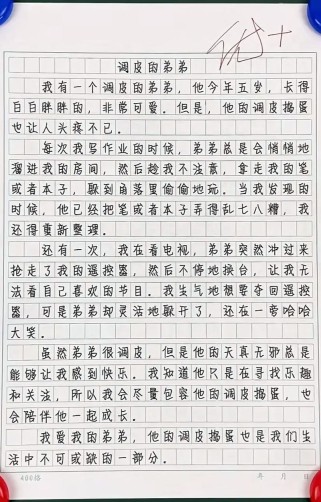 优+
调皮的弟弟
我有一个调皮的弟弟，他今年五岁，长得
白白胖胖的，非常可爱。但是，他的调皮捣蛋
也让人头疼不已。
每次我写作业的时候，弟弟总是会悄悄地
溜进我的房间，然后趁我不注意，拿走我的笔
或者本子，躲到角落里偷偷地玩。当我发现的
时候，他已经把笔或者本子弄得乱七八糟，我
还得重新整理。
还有一次，我在看电视，弟弟突然冲过来
抢走了我的遥控器，然后不停地换台，让我无
法看自己喜欢的节目。我生气地想要夺回遥控
器，可是弟弟却灵活地躲开了，还在一旁哈哈
大笑。
虽然弟弟很调皮，但是他的天真无邪总是
能够让我感到快乐。我知道他只是在寻找乐趣
和关注，所以我会尽量包容他的调皮捣蛋，也
会陪伴他一起成长。
我爱我的弟弟，他的调皮捣蛋也是我们生
活中不可或缺的一部分。
400格
年 月 日